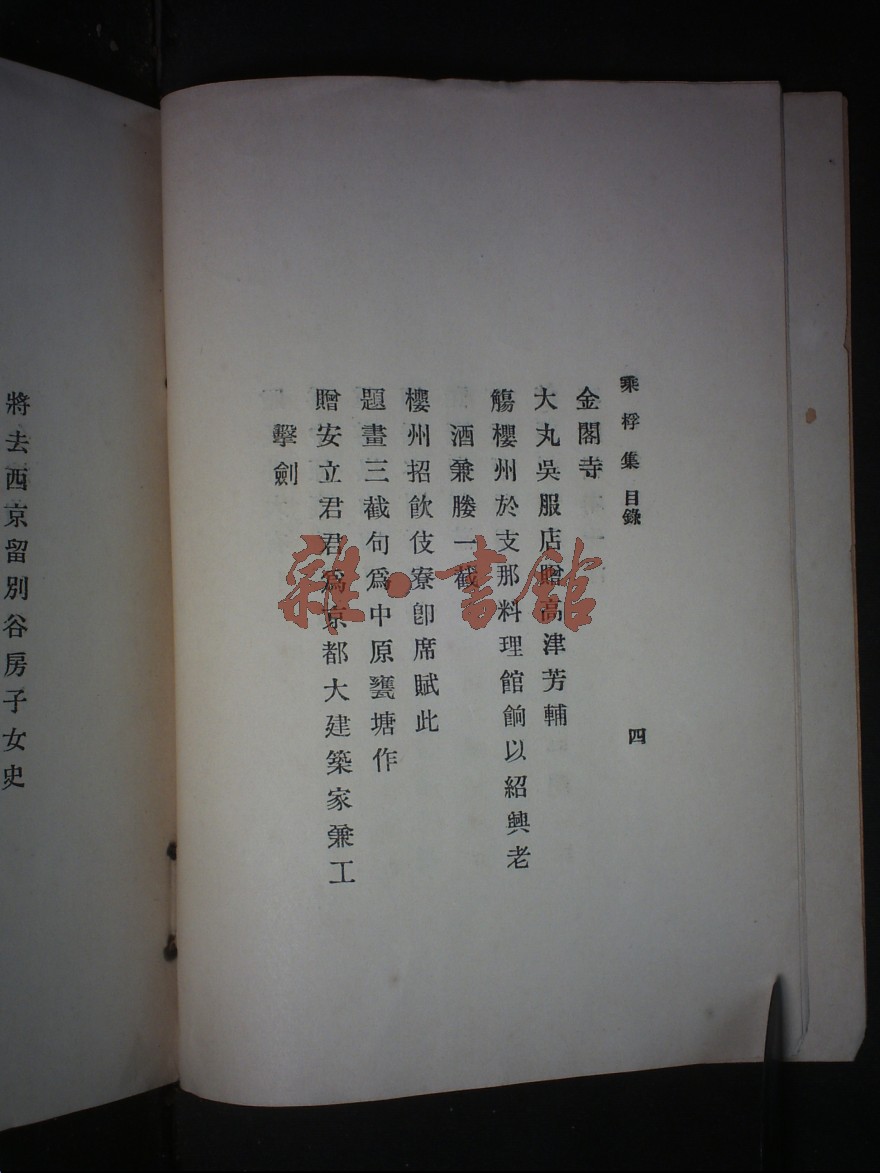 乘桴集 目錄 四
金閣寺
大丸吳服店贈高津芳輔
觴櫻州於支那料理館餉以紹興老
酒兼媵一截
櫻州招飲伎寮卽席賦此
題畫三截句爲中原甕塘作
贈安立君君爲京都大建築家兼工
擊劍
將去西京留別谷房子女史
雜·書館